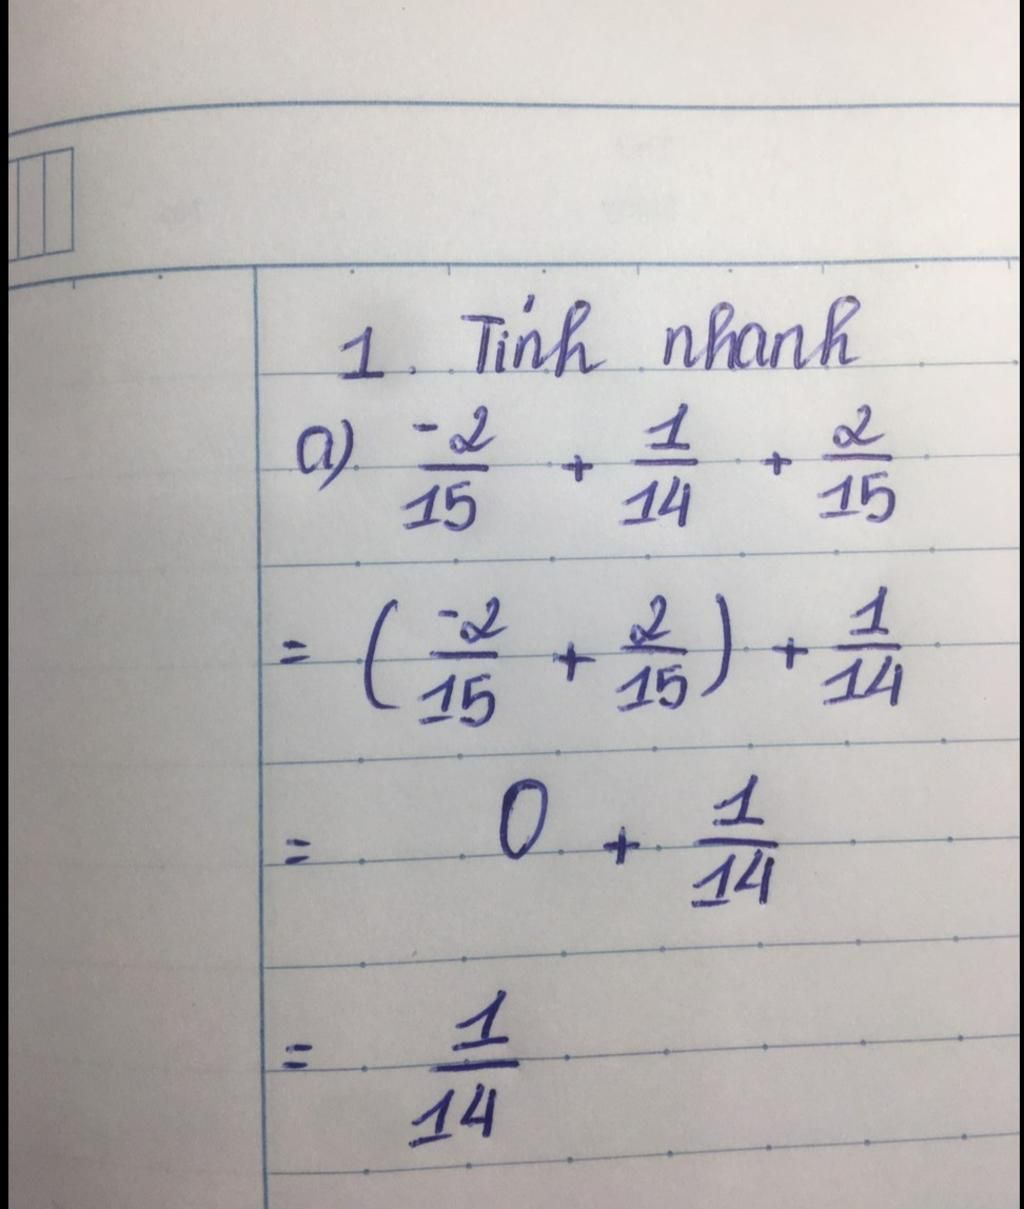 1. Tính nhanh
a) -2/15 + 1/14 + 2/15
= (-2/15 + 2/15) + 1/14
= 0 + 1/14
= 1/14